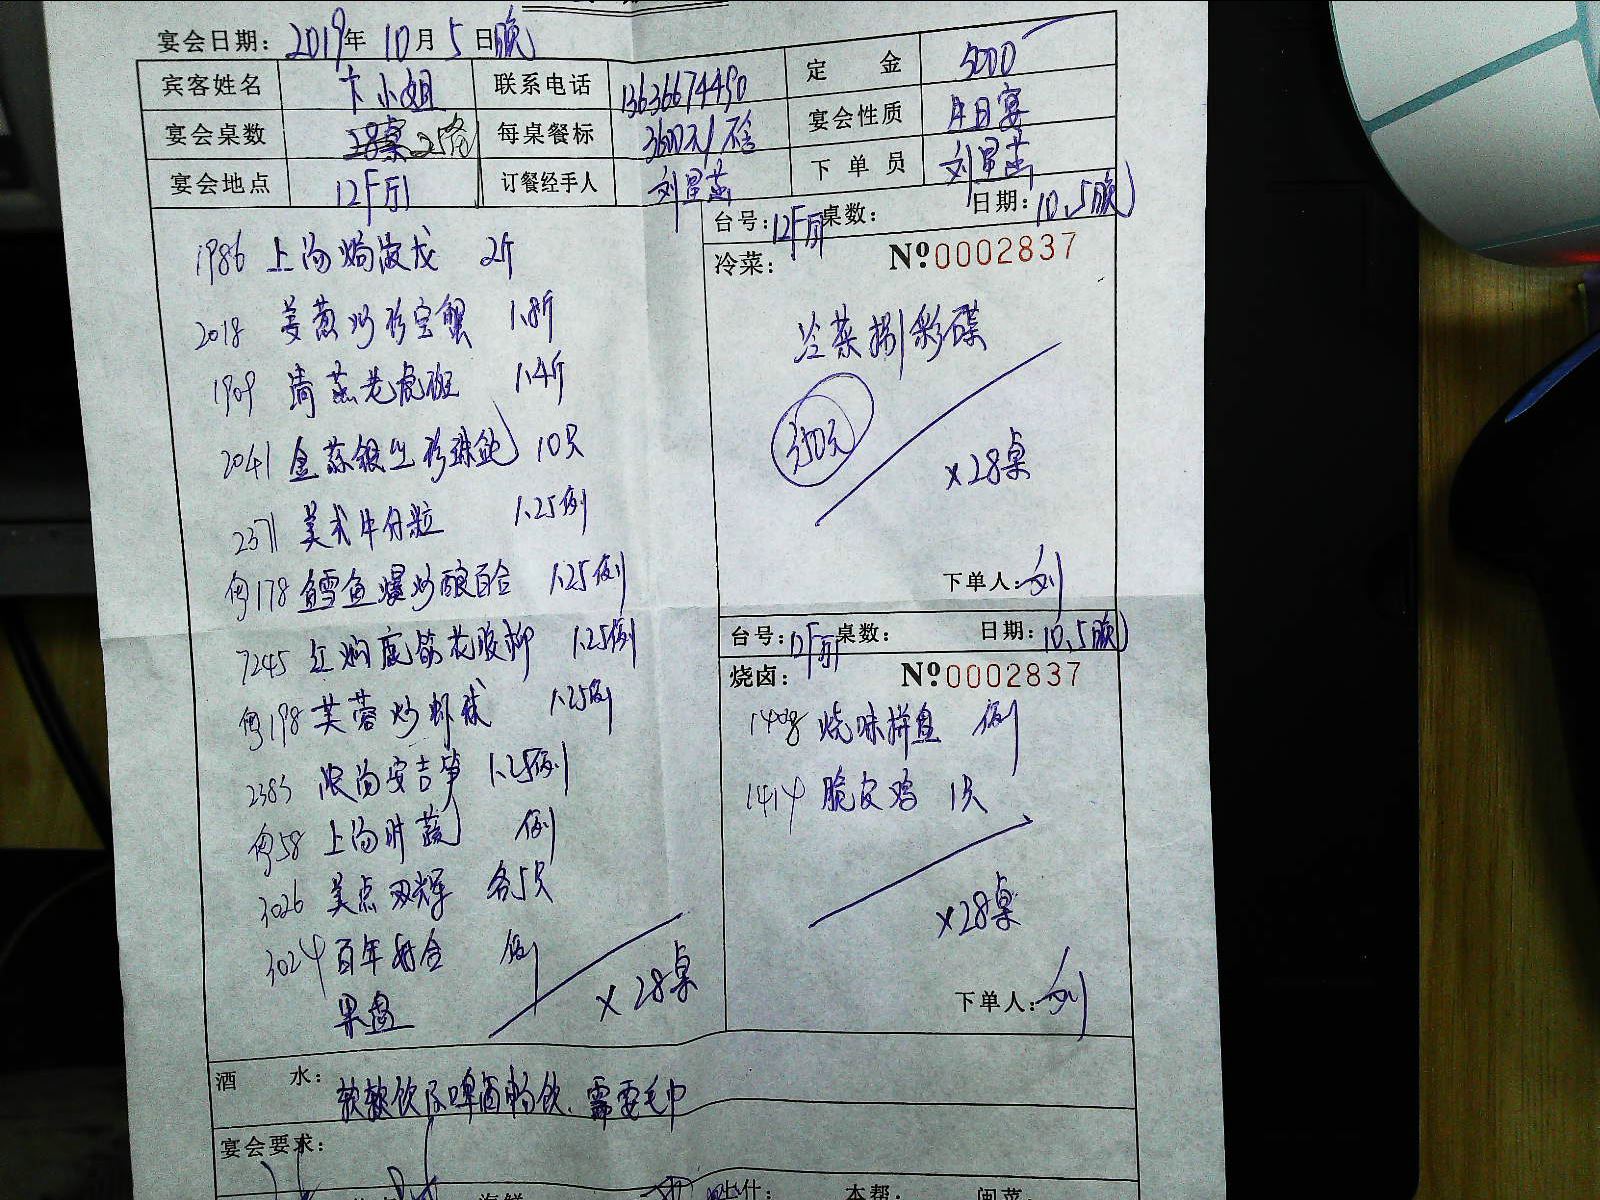 宴会日期: 2019年10月5日晚
宾客姓名 卞小姐 联系电话 13636674490 定 金 5000
宴会桌数 28桌 每桌餐标 3600元/ 宴会性质 生日宴
宴会地点 12F厅 订餐经手人 刘 下单员 刘
台号: 12F厅 桌数: 日期: 10.5晚
冷菜: №0002837
冷菜捌彩碟
350元
×28桌
下单人: 刘
1986 上汤焗波龙 2斤
2018 姜葱炒珍宝蟹 1.8斤
1909 清蒸老虎斑 1.4斤
2041 金蒜银丝珍珠鲍 10只
2371 美式牛仔粒 1.25例
粤178 鳕鱼爆炒酿百合 1.25例
7245 红焖鹿筋花胶柳 1.25例
粤198 芙蓉炒虾球 1.25例
2383 浓汤安吉笋 1.25例
粤58 上汤时蔬 例
3026 美点双辉 各5只
3024 百年好合 例
果盘
×28桌
台号: 12F厅 桌数: 日期: 10.5晚
烧卤: №0002837
1408 烧味拼盘 例
1414 脆皮鸡 1只
×28桌
下单人: 刘
酒 水: 软饮 啤酒畅饮、需要毛巾
宴会要求:
海鲜
本帮: 闽菜: